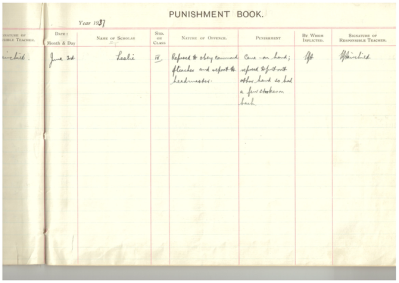 PUNISHMENT BOOK.
Year 1937
SIGNATURE OF
RESPONSIBLE TEACHER.
DATE:
Month & Day
NAME OF SCHOLAR
STD.
OR
CLASS
NATURE OF OFFENCE.
PUNISHMENT
BY WHOM
INFLICTED.
SIGNATURE OF
RESPONSIBLE TEACHER.
June 2nd
Leslie
IV
Refused to obey command
of teacher and report to
headmaster.
Cane on hand;
refused to put out
other hand so had
a few strokes on
back